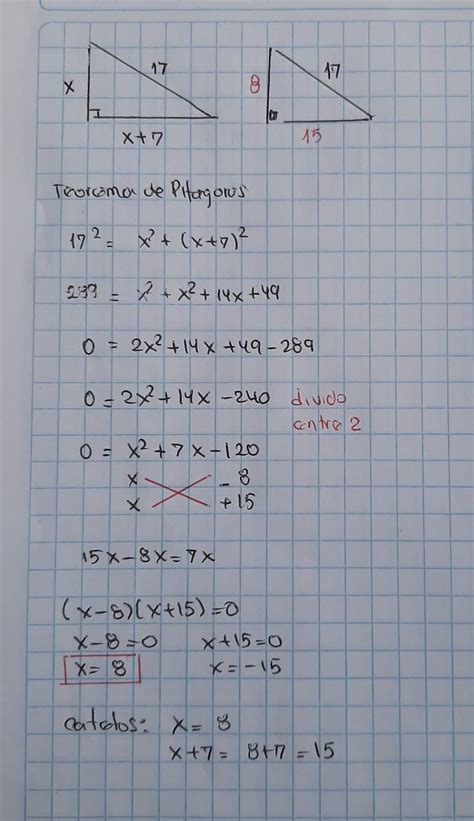 x 17 x+7
8 17 15
Teorema de Pitagoras
17² = x² + (x+7)²
289 = x² + x² + 14x + 49
0 = 2x² + 14x + 49 - 289
0 = 2x² + 14x - 240 divido
centre 2
0 = x² + 7x - 120
x - 8
x + 15
15x - 8x = 7x
(x-8)(x+15) = 0
x - 8 = 0 x + 15 = 0
x = 8 x = -15
catetos: x = 8
x + 7 = 8 + 7 = 15